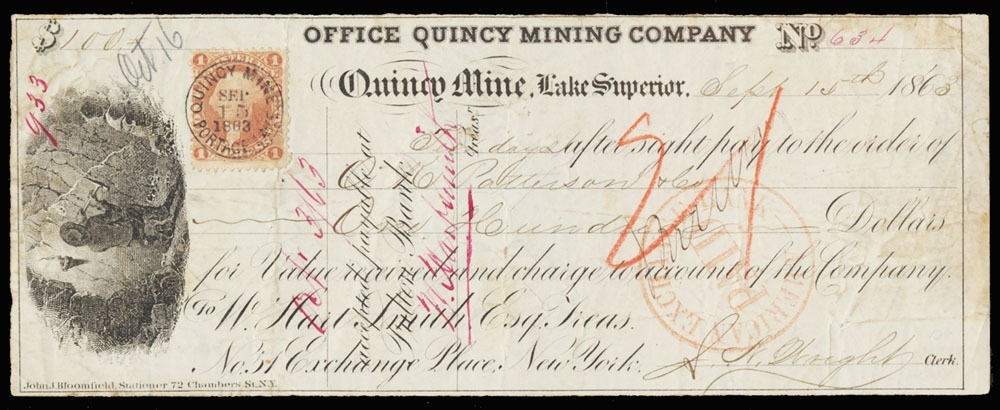 $100 OFFICE QUINCY MINING COMPANY No. 634
Oct. 16
Quincy Mine, Lake Superior. Sept 15th 1863
933
1 1
QUINCY MINE
SEP
15
1863
PORTAGE LAKE
1 1
days after sight pay to the order of
Patterson & Co
One Hundred Dollars
for Value received and charge to account of the Company.
To Wm Hart Smith Esq. Treas.
No. 31 Exchange Place, New York.
Clerk.
and payable at
Bank
Treas.
PAID
AMERICAN EXCHANGE
John J. Bloomfield, Stationer 72 Chambers St. N.Y.